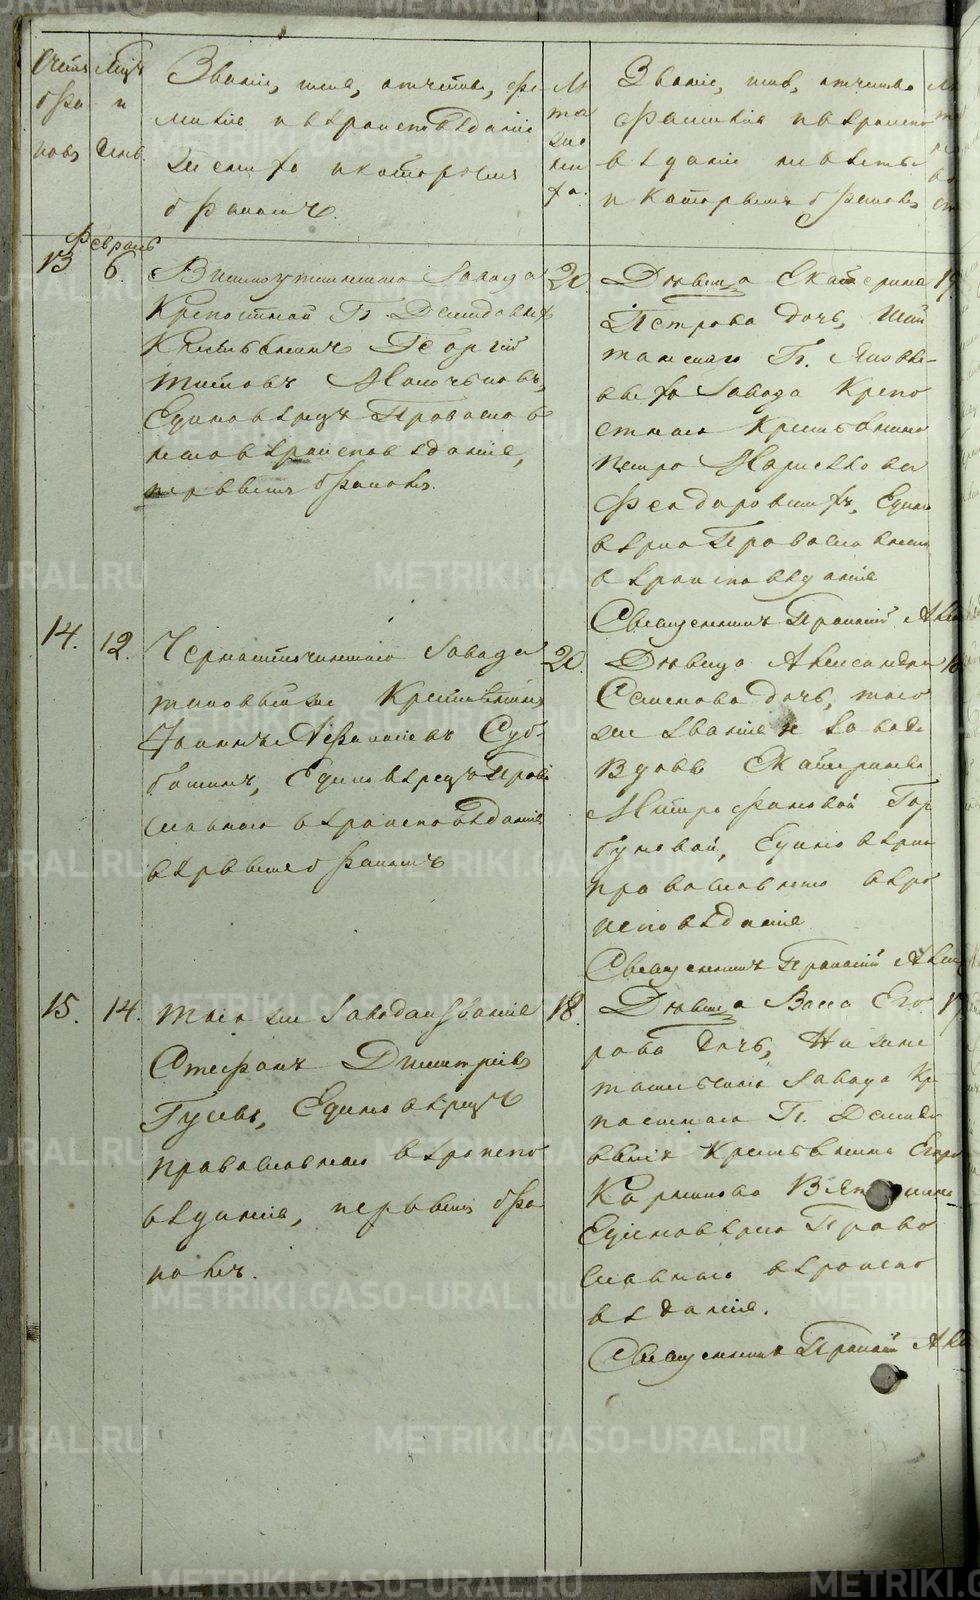 Счетъ
брa
ковъ
Мцъ
и
число.
Званіе, имя, отчество, фа
миліе и вѣроисповѣданіе
жениха и которымъ
бракомъ.
Лѣ
та
же
ни
ха.
Званіе, имя, отчество
фамиліе и вѣроиспо
вѣданіе невѣсты
и которымъ бракомъ
Февраль
13
6.
Висимоуткинскаго Завода
Крепостной Гг. Демидовыхъ
Крестьянинъ Георгій
Титовъ
Единовѣрецъ Православ
наго вѣроисповѣданія,
первымъ бракомъ.
20.
Дѣвица Екатерина
Петрова дочь, Шай
танскаго Гг. Яковле-
выхъ Завода Крепо
стнаго Крестьянина
Петра
Федоровыхъ, Едино
вѣрка Православнаго
вѣроисповѣданія
Священникъ
19
14.
12.
Черноисточинскаго Завода
таковый же Крестьянинъ
Іоаннъ Афанасіевъ Суб-
ботинъ, Единовѣрецъ Право
славнаго вѣроисповѣданія
первымъ бракомъ
20.
Дѣвица Александра
Семенова дочь, того
же званія и завода
Вдовы Екатерины
Митрофановой Гор
буновой, Единовѣрка
православнаго вѣро
исповѣданія
Священникъ
15.
14.
того же Завода и званія
Стефанъ Димитріевъ
Гусевъ, Единовѣрецъ
православнаго вѣроиспо
вѣданія, первымъ бра
комъ.
18.
Дѣвица Васса Его
рова дочь, Нижне
тагильскаго Завода Кре
постнаго Гг. Демидо
выхъ Крестьянина Егора
Единовѣрка Право
славнаго вѣроиспо
вѣданія.
Священникъ
17
METRIKI.GASO-URAL.RU